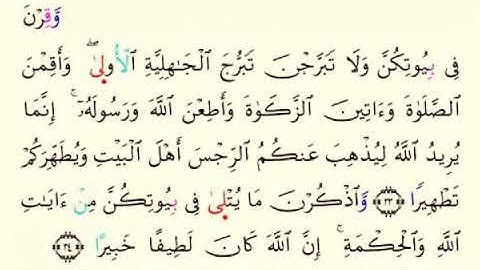 وَقِرۡنَ
فِي بِيُوتِكُنَّ وَلَا تَبَرَّجۡنَ تَبَرُّجَ ٱلۡجَٰهِلِيَّةِ ٱلۡأُولىٰۖ وَأَقِمۡنَ
ٱلصَّلَوٰةَ وَءَاتِينَ ٱلزَّكَوٰةَ وَأَطِعۡنَ ٱللَّهَ وَرَسُولَهُۥٓۚ إِنَّمَا
يُرِيدُ ٱللَّهُ لِيُذۡهِبَ عَنكُمُ ٱلرِّجۡسَ أَهۡلَ ٱلۡبَيۡتِ وَيُطَهِّرَكُمۡ
تَطۡهِيرٗا ٣٣ وَٱذۡكُرۡنَ مَا يُتۡلىٰ فِي بِيُوتِكُنَّ مِنۡ ءَايَٰتِ
ٱللَّهِ وَٱلۡحِكۡمَةِۚ إِنَّ ٱللَّهَ كَانَ لَطِيفًا خَبِيرًا ٣٤